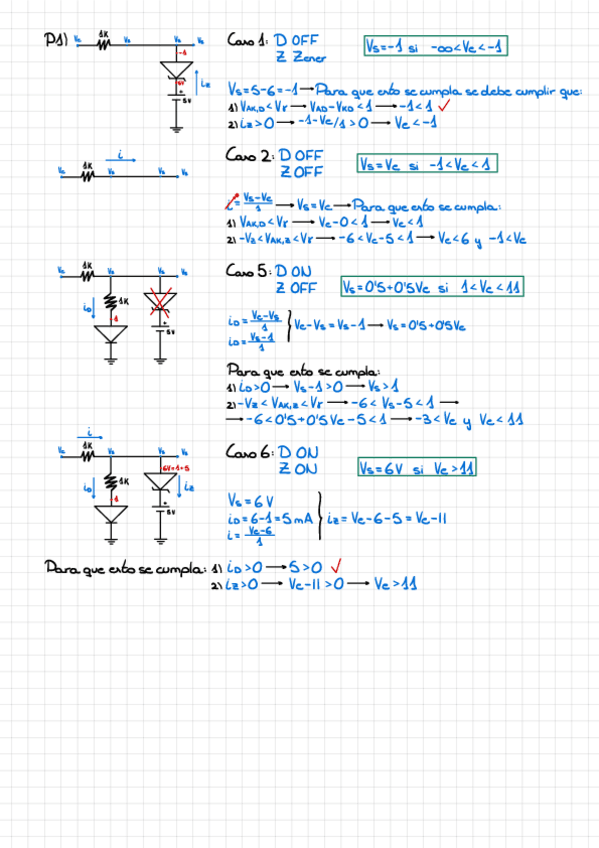 P1)
Ve 1K Vs Vs Vs
-1
6V
iz
5V
Caso 1: D OFF
Z Zener
Vs=-1 si -∞<Ve<-1
Vs=5-6=-1→Para que esto se cumpla se debe cumplir que:
1) VAK,D<Vr→VAD-VKD<1→-1<1 ✓
2) iz>0→-1-Ve/1>0→Ve<-1
i
Ve 1K Vs Vs
Caso 2: D OFF
Z OFF
Vs=Ve si -1<Ve<1
i=Vs-Ve/1→Vs=Ve→Para que esto se cumpla:
1) VAK,D<Vr→Ve-0<1→Ve<1
2) -Vz<VAK,z<Vr→-6<Ve-5<1→Ve<6 y -1<Ve
Ve 1K Vs Vs Vs
iD 1K
1
5V
Caso 5: D ON
Z OFF
Vs=0'5+0'5Ve si 1<Ve<11
iD=Ve-Vs/1
iD=Vs-1/1
} Ve-Vs=Vs-1→Vs=0'5+0'5Ve
Para que esto se cumpla:
1) iD>0→Vs-1>0→Vs>1
2) -Vz<VAK,z<Vr→-6<Vs-5<1→
→-6<0'5+0'5Ve-5<1→-3<Ve y Ve<11
i
Ve 1K Vs Vs Vs
6V=1+5
iD 1K
iz
1
5V
Caso 6: D ON
Z ON
Vs=6V si Ve>11
Vs=6V
iD=6-1=5mA
i=Ve-6/1
} iz=Ve-6-5=Ve-11
Para que esto se cumpla: 1) iD>0→5>0 ✓
2) iz>0→Ve-11>0→Ve>11